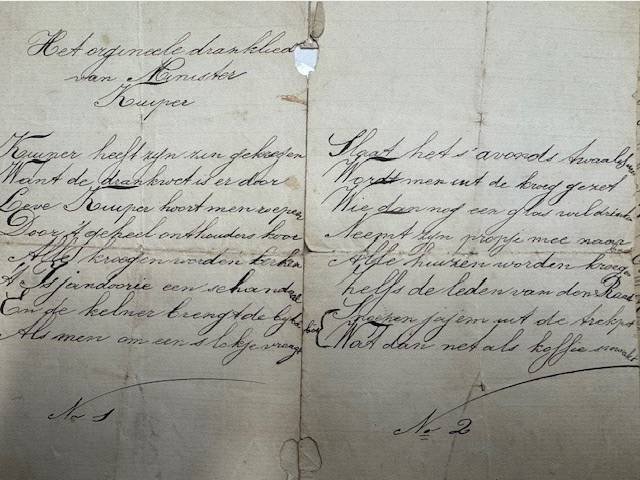 Het orgineele dranklied
van Minister
Kuiper
Kuiper heeft zijn zin gekregen
Want de drankwet is er door
Leve Kuiper hoort men roepen
Door 't geheel onthouders koor
Alle kroegen worden kerken
't Is jandoorie een schandaal
En de kelner brengt de bijbel
Als men om een slokje vraagt
No 1
Slaat het s'avonds twaalf
Wordt men uit de kroeg gezet
Wie dan nog een glas wil drinken
Neemt zijn propje mee naar
Alle huizen worden kroeg
helfs de leden van den Raad
Snoepen jajem uit de trekpot
Wat dan net als koffie smaakt
No 2